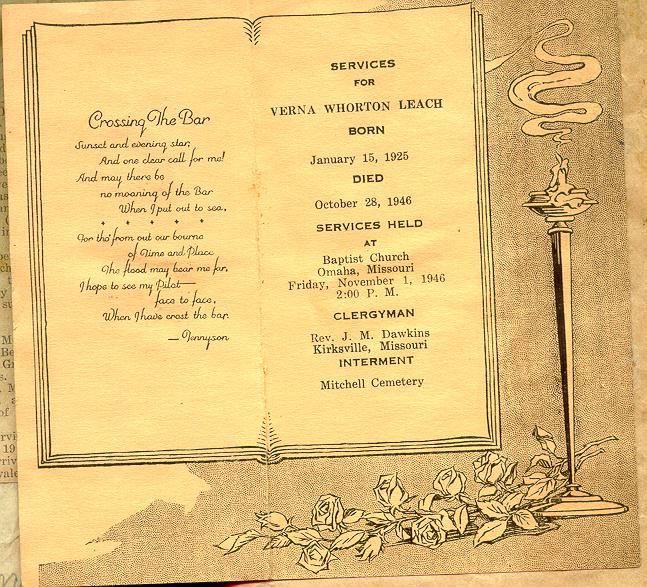 Crossing The Bar
Sunset and evening star,
And one clear call for me!
And may there be
no moaning of the Bar
When I put out to sea.
For tho' from out our bourne
of Time and Place
The flood may bear me far,
I hope to see my Pilot—
face to face,
When I have crost the bar.
— Tennyson
SERVICES
FOR
VERNA WHORTON LEACH
BORN
January 15, 1925
DIED
October 28, 1946
SERVICES HELD
AT
Baptist Church
Omaha, Missouri
Friday, November 1, 1946
2:00 P. M.
CLERGYMAN
Rev. J. M. Dawkins
Kirksville, Missouri
INTERMENT
Mitchell Cemetery